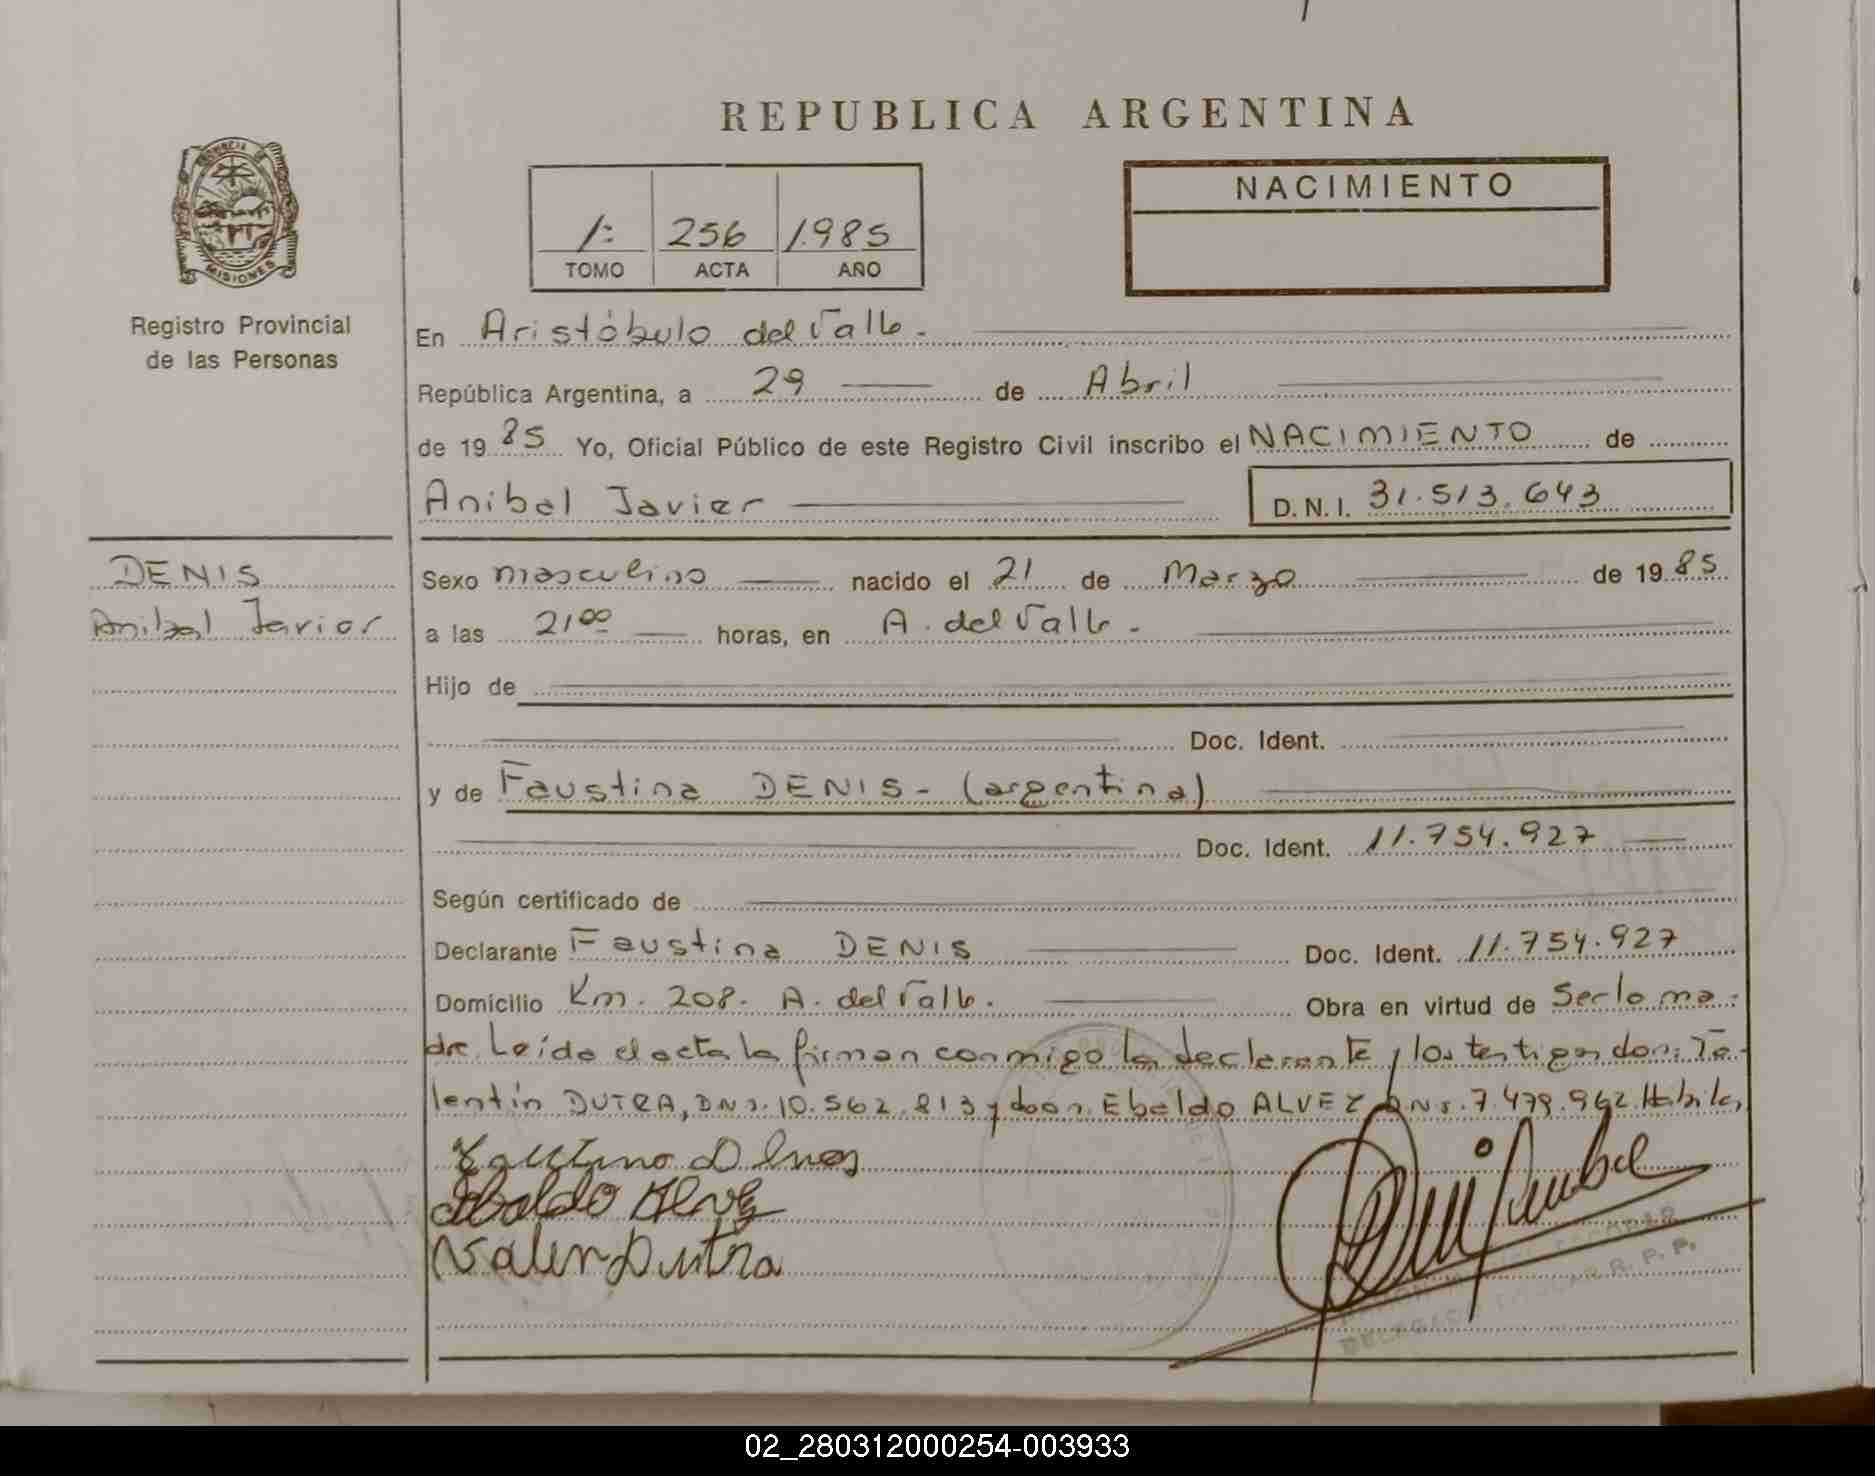 REPUBLICA ARGENTINA
PROVINCIA DE
MISIONES
Registro Provincial
de las Personas
1: 256 1.985
TOMO ACTA AÑO
NACIMIENTO
En Aristóbulo del Valle.-
República Argentina, a 29 de Abril
de 19 85 Yo, Oficial Público de este Registro Civil inscribo el NACIMIENTO de
Anibal Javier D.N.I. 31.513.643
DENIS
Anibal Javier
Sexo masculino nacido el 21 de Marzo de 19 85
a las 21 00 horas, en A. del Valle.-
Hijo de
Doc. Ident.
y de Faustina DENIS- (argentina)
Doc. Ident. 11.754.927
Según certificado de
Declarante Faustina DENIS Doc. Ident. 11.754.927
Domicilio Km. 208. A. del Valle. Obra en virtud de Serlo ma-
dre. Leída el acta la firman conmigo la declarante y los testigos don:
lentín DUTRA, DNI. 10.562.813 y don: Ebaldo ALVEZ DNI. 7.479.962. Hábiles
Ebaldo Alvez
Valen Dutra
DELEGADO TITULAR R. P. P.
02_280312000254-003933